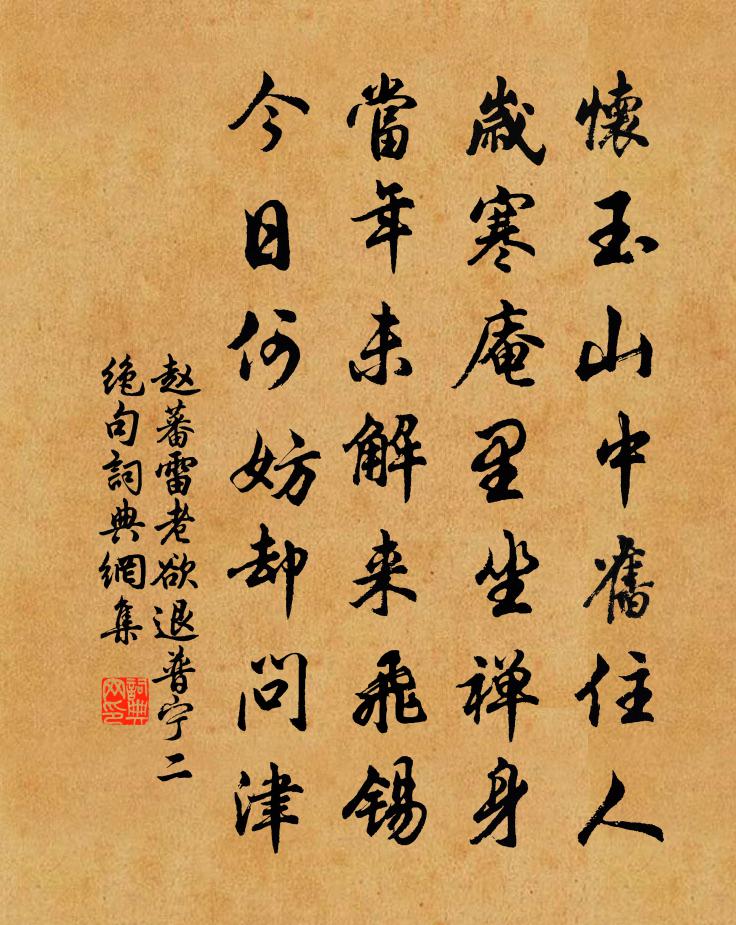 懷玉山中舊住人
歲寒庵里坐禅身
當年未解来飛锡
今日何妨却問津
赵蕃雷老欲退普宁二
绝句詞典網集
詞典